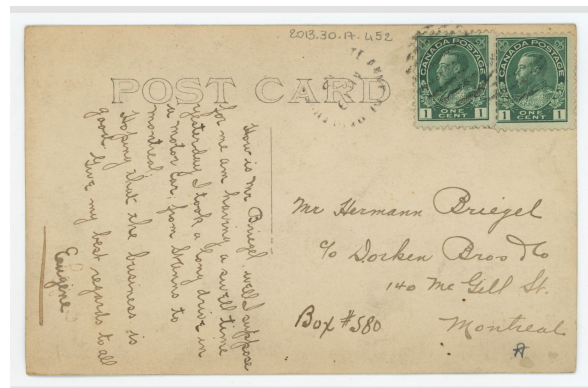 2013.30.17.452
POST CARD
CANADA POSTAGE
1 ONE CENT 1
CANADA POSTAGE
1 ONE CENT 1
How is Mr Briegel well I suppose
for me am having a swell time
yesterday I took a long drive in
a motor car, from Stanns to
montreal.
Hoping that the business is
good. Give my best regards to all
Eaugene
Mr Hermann Briegel
c/o Dorken Bros & Co
140 Mc Gill St.
Box #580
Montreal